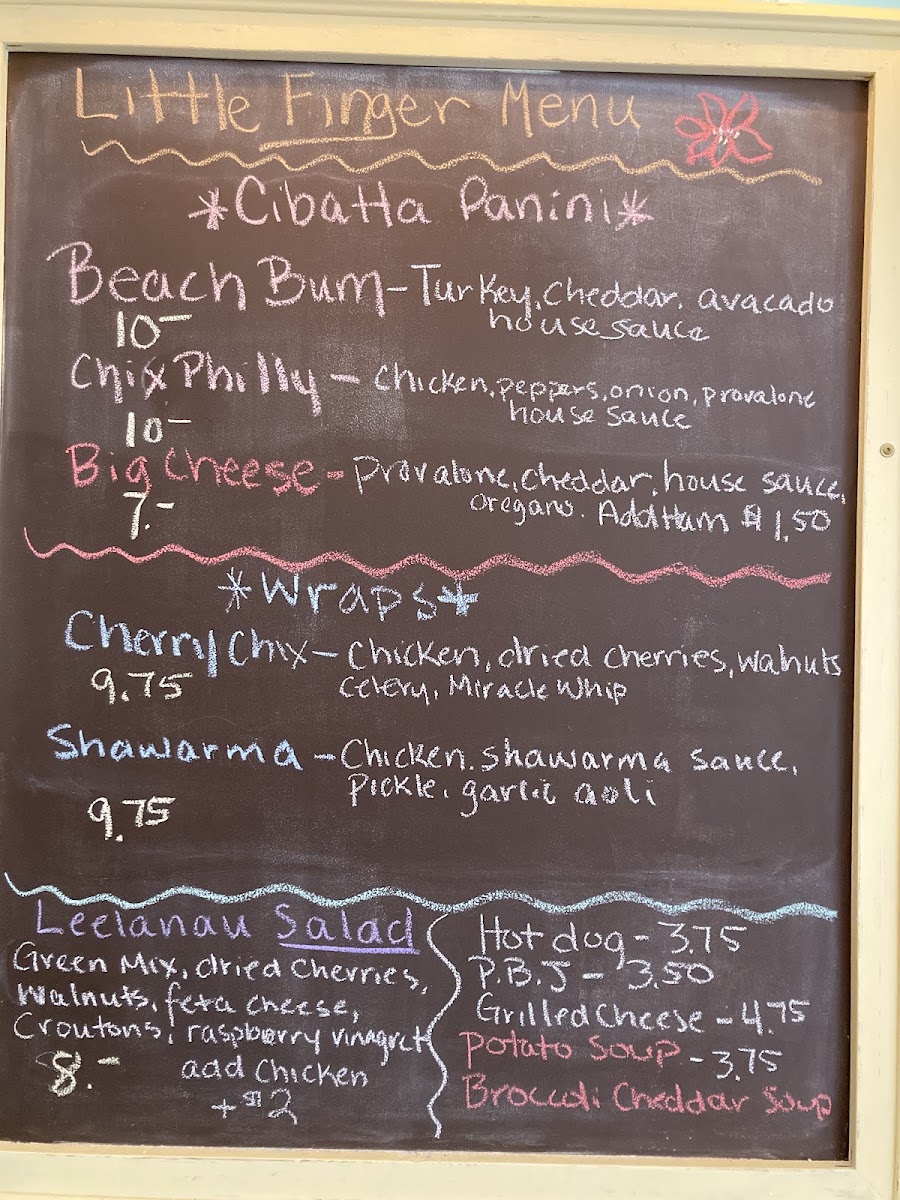 Little Finger Menu
*Cibatta Panini*
Beach Bum - Turkey, cheddar, avacado
house sauce
10-
Chix Philly - Chicken, peppers, onion, provalone
house sauce
10-
Big Cheese - provalone, cheddar, house sauce,
oregano. Add Ham $1.50
7.-
*Wraps*
Cherry Chix - Chicken, dried cherries, walnuts
celery, Miracle Whip
9.75
Shawarma - Chicken. shawarma sauce,
pickle, garlic aoli
9.75
Leelanau Salad
Green Mix, dried cherries,
walnuts, feta cheese,
Croutons, raspberry vinagret
8.- add chicken
+ $2
Hot dog - 3.75
P.B.J - 3.50
Grilled Cheese - 4.75
Potato Soup - 3.75
Broccoli Cheddar Soup